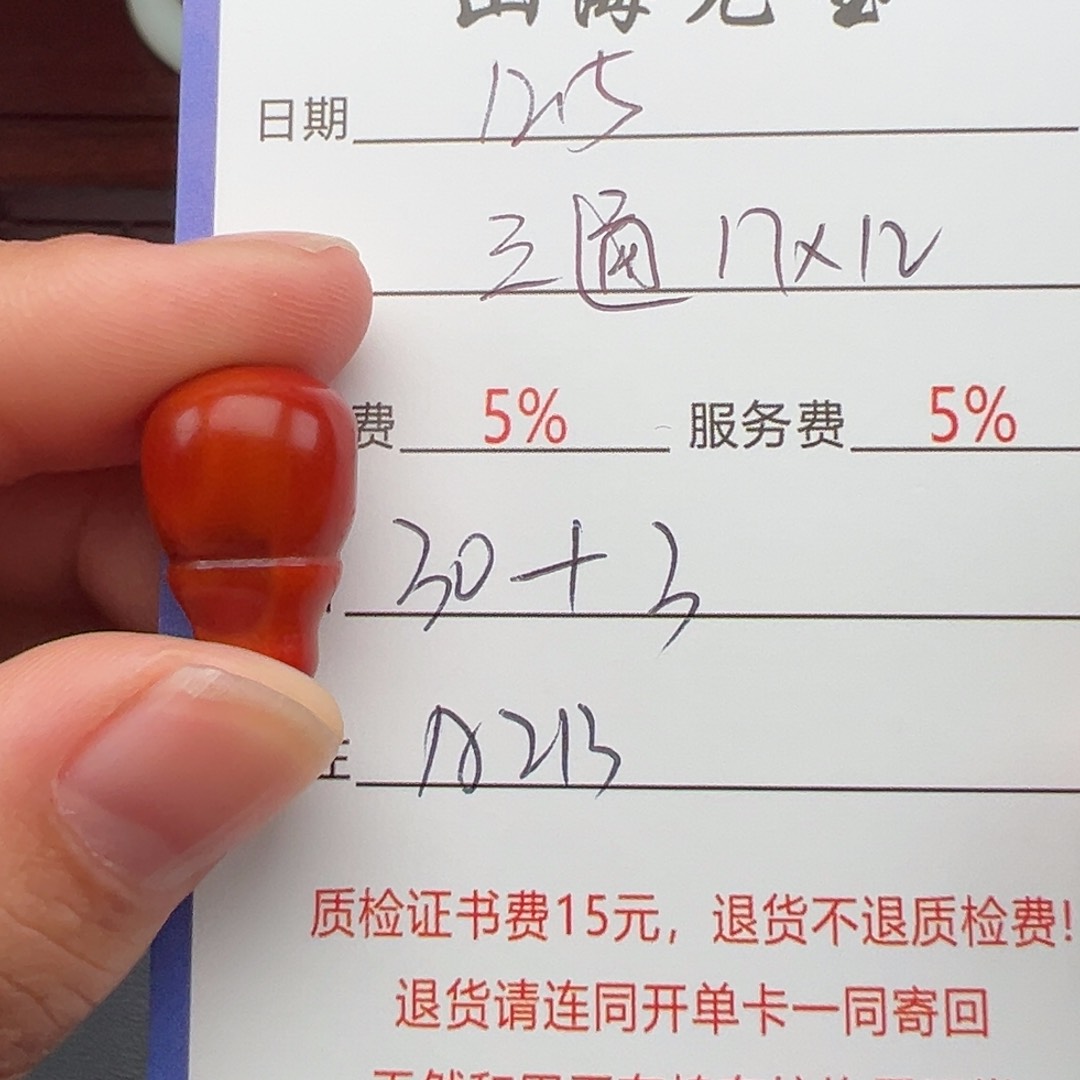 日期 12.15
三通 17×12
费 5% 服务费 5%
30+3
213
质检证书费15元，退货不退质检费!
退货请连同开单卡一同寄回